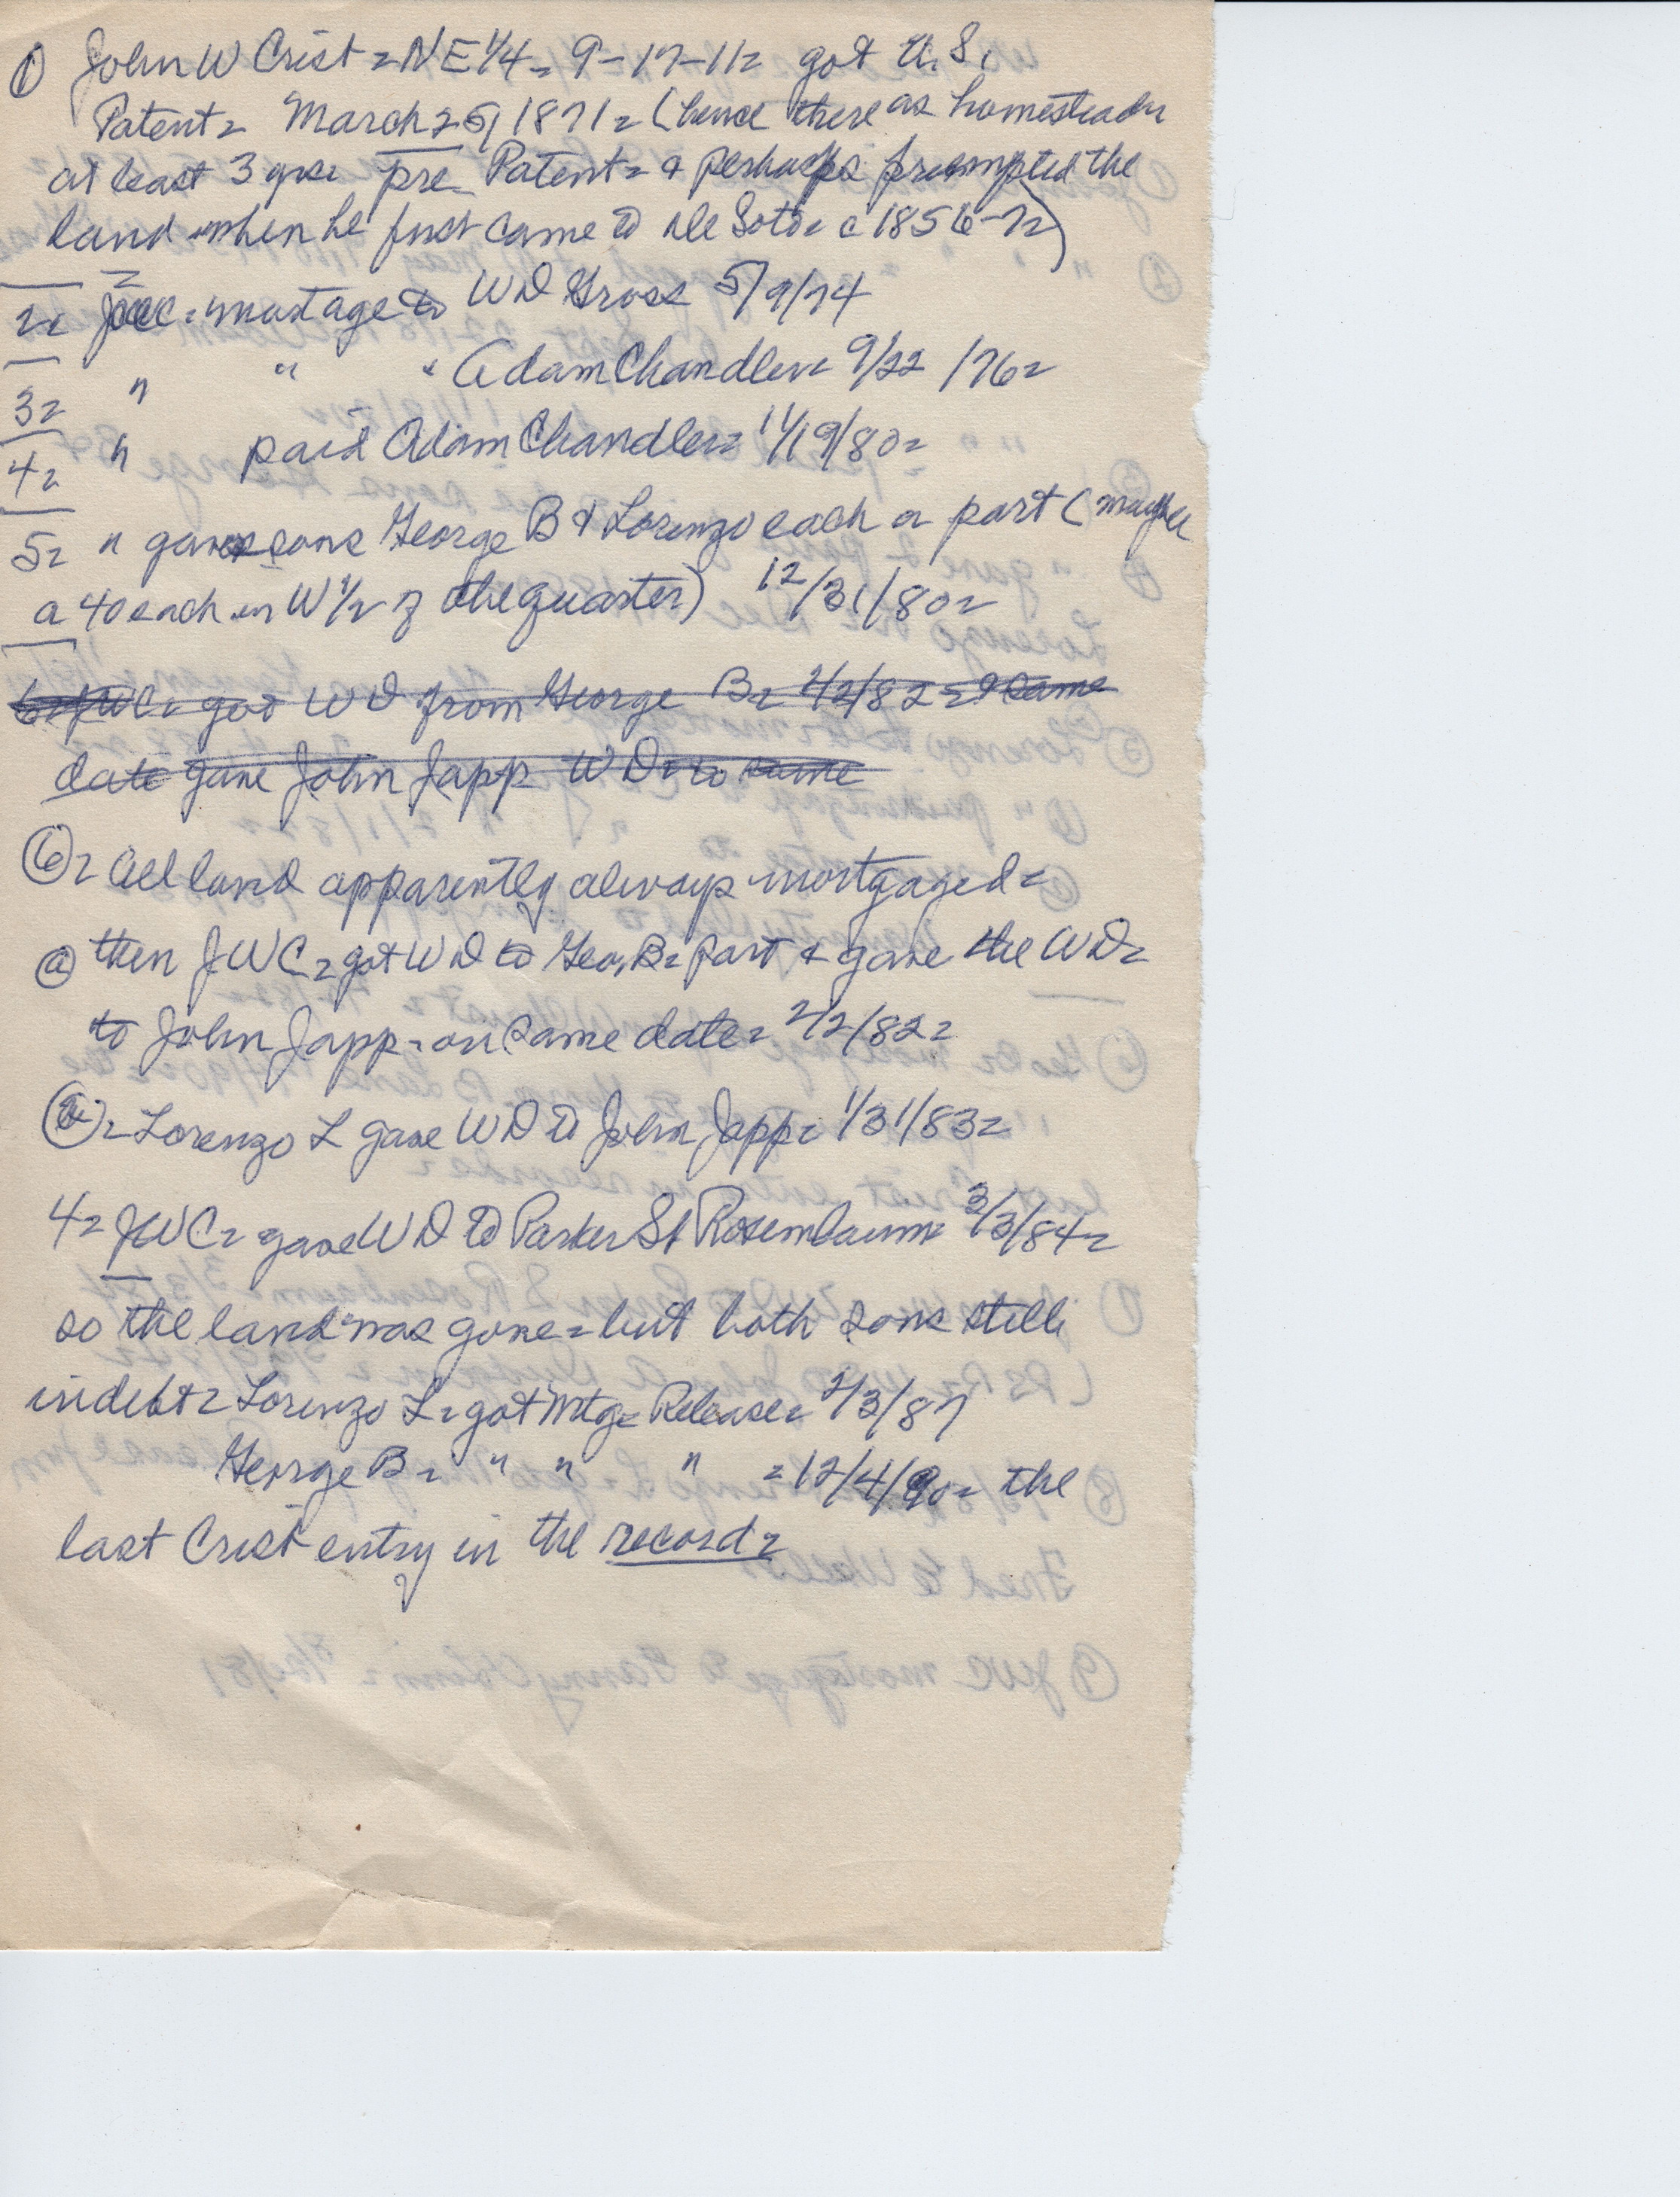 ① John W Crist = NE 1/4 = 9-17-11= got U.S.
Patent = March 25, 1871 = (hence there as homesteader
at least 3 yrs = pre Patent = & perhaps preempted the
land when he first came to De Soto = c 1856-7=)
2= JWC = mortage to WD Gross 5/9/74
3= " " " Adam Chandler = 9/22/76=
4= " paid Adam Chandler = 11/19/80=
5= " gave sons George B & Lorenzo each a part (maybe
a 40 each in W 1/2 of the quarter) 12/31/80=
6= JWC = got WD from George B = 2/2/82 = & same
date gave John Japp WD = to same
⑥= All land apparently always mortgaged =
ⓐ then JWC = got WD to Geo. B = part & gave the WD=
to John Japp - on same date = 2/2/82=
= Lorenzo L gave WD to John Japp = 1/31/83=
4= JWC = gave WD to Parker Rosenbaum = 3/3/84=
so the land was gone = but both sons still
in debt = Lorenzo L = got Mtg = Release = 2/3/87
George B = " " " = 12/4/90 = the
last Crist entry in the record =